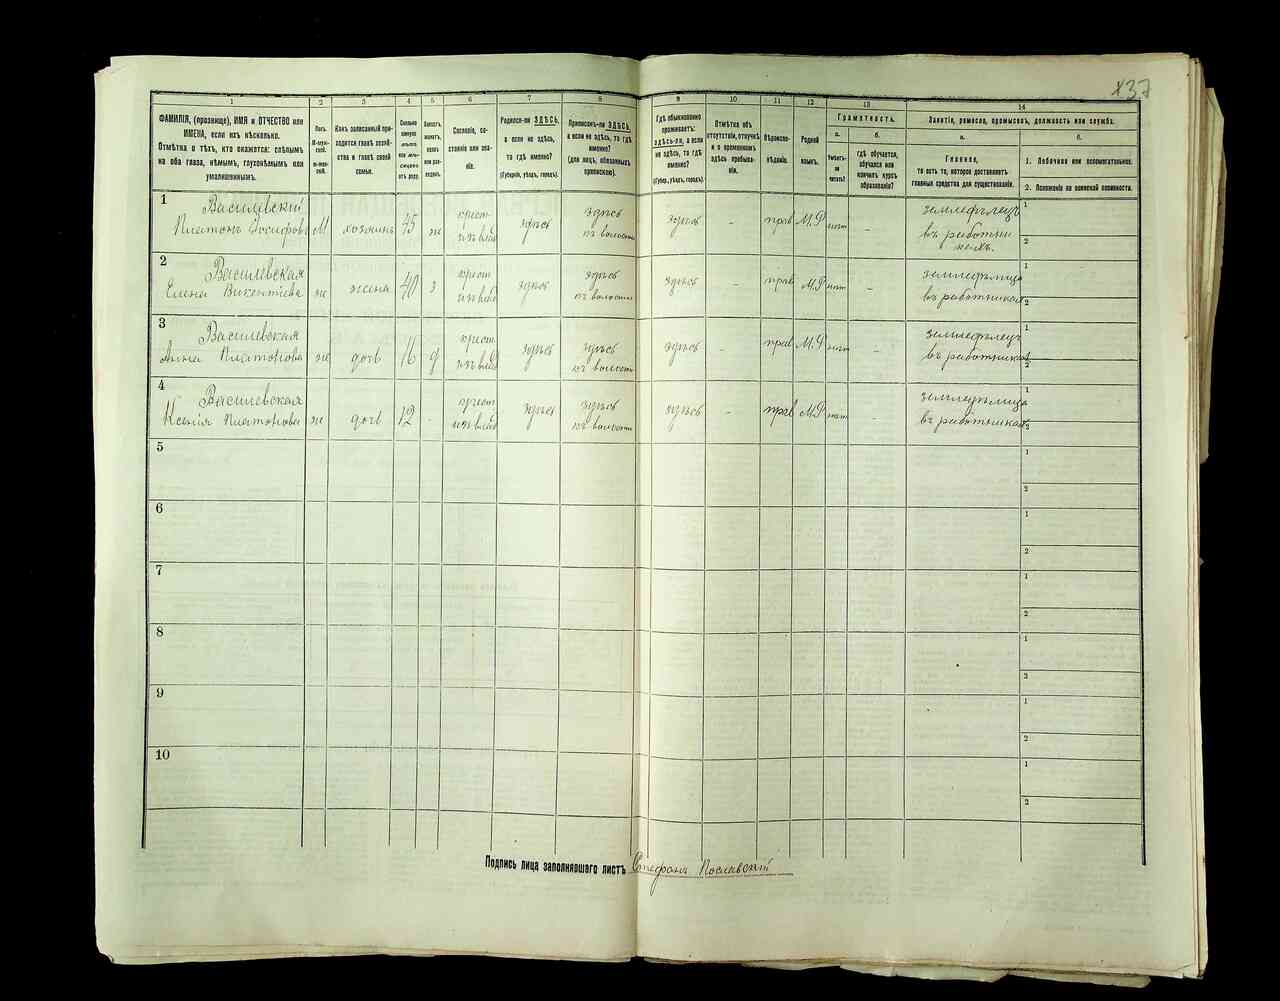 137
1 2 3 4 5 6 7 8 9 10 11 12 13 14
ФАМИЛІЯ, (прозвище), ИМЯ и ОТЧЕСТВО или
ИМЕНА, если ихъ нѣсколько.
Отмѣтка о тѣхъ, кто окажется: слѣпымъ
на оба глаза, нѣмымъ, глухонѣмымъ или
умалишеннымъ.
Полъ.
М-муж-
ской.
Ж-жен-
скій.
Какъ записанный при-
ходится главѣ хозяй-
ства и главѣ своей
семьи.
Сколько
минуло
лѣтъ
или мѣ-
сяцевъ
отъ роду.
Холостъ,
женатъ,
вдовъ
или раз-
веденъ.
Сословіе, со-
стояніе или зва-
ніе.
Родился-ли ЗДѢСЬ,
а если не здѣсь,
то гдѣ именно?
(Губернія, уѣздъ, городъ).
Приписанъ-ли ЗДѢСЬ,
а если не здѣсь, то гдѣ
именно?
(для лицъ, обязанныхъ
припискою).
Гдѣ обыкновенно
проживаетъ:
здѣсь-ли, а если
не здѣсь, то гдѣ
именно?
(Губер., уѣздъ, городъ).
Отмѣтка объ
отсутствіи, отлучкѣ
и о временномъ
здѣсь пребыва-
ніи.
Вѣроиспо-
вѣданіе.
Родной
языкъ.
Грамотность.
а.
Умѣетъ-
ли
читать?
б.
гдѣ обучается,
обучался или
кончилъ курсъ
образованія?
Занятіе, ремесло, промыселъ, должность или служба.
а.
Главное,
то есть то, которое доставляетъ
главныя средства для существованія.
б.
1. Побочное или вспомогательное.
2. Положеніе по воинской повинности.
1 Василевский
Платонъ Іосифовъ М хозяинъ 45 ж крест. изъ влад. здѣсь здѣсь въ волости здѣсь - прав М.Р нѣт - землед­ѣлецъ въ работни кахъ. 1 2
2 Василевская
Елена Викентіева ж жена 40 з крест изъ влад здѣсь здѣсь въ волости здѣсь - прав М.Р нѣт - земледѣлица въ работникахъ 1 2
3 Василевская
Анна Платонова ж дочь 16 д крест изъ влад здѣсь здѣсь въ волости здѣсь - прав М.Р нѣт - земледѣлецъ въ работникахъ 1 2
4 Василевская
Ксенія Платонова ж дочь 12 - крест изъ влад здѣсь здѣсь въ волости здѣсь - прав М.Р нѣт - земледѣлица въ работникахъ 1 2
5 1 2
6 1 2
7 1 2
8 1 2
9 1 2
10 1 2
Подпись лица заполнявшаго листъ Стефанъ Пославскій